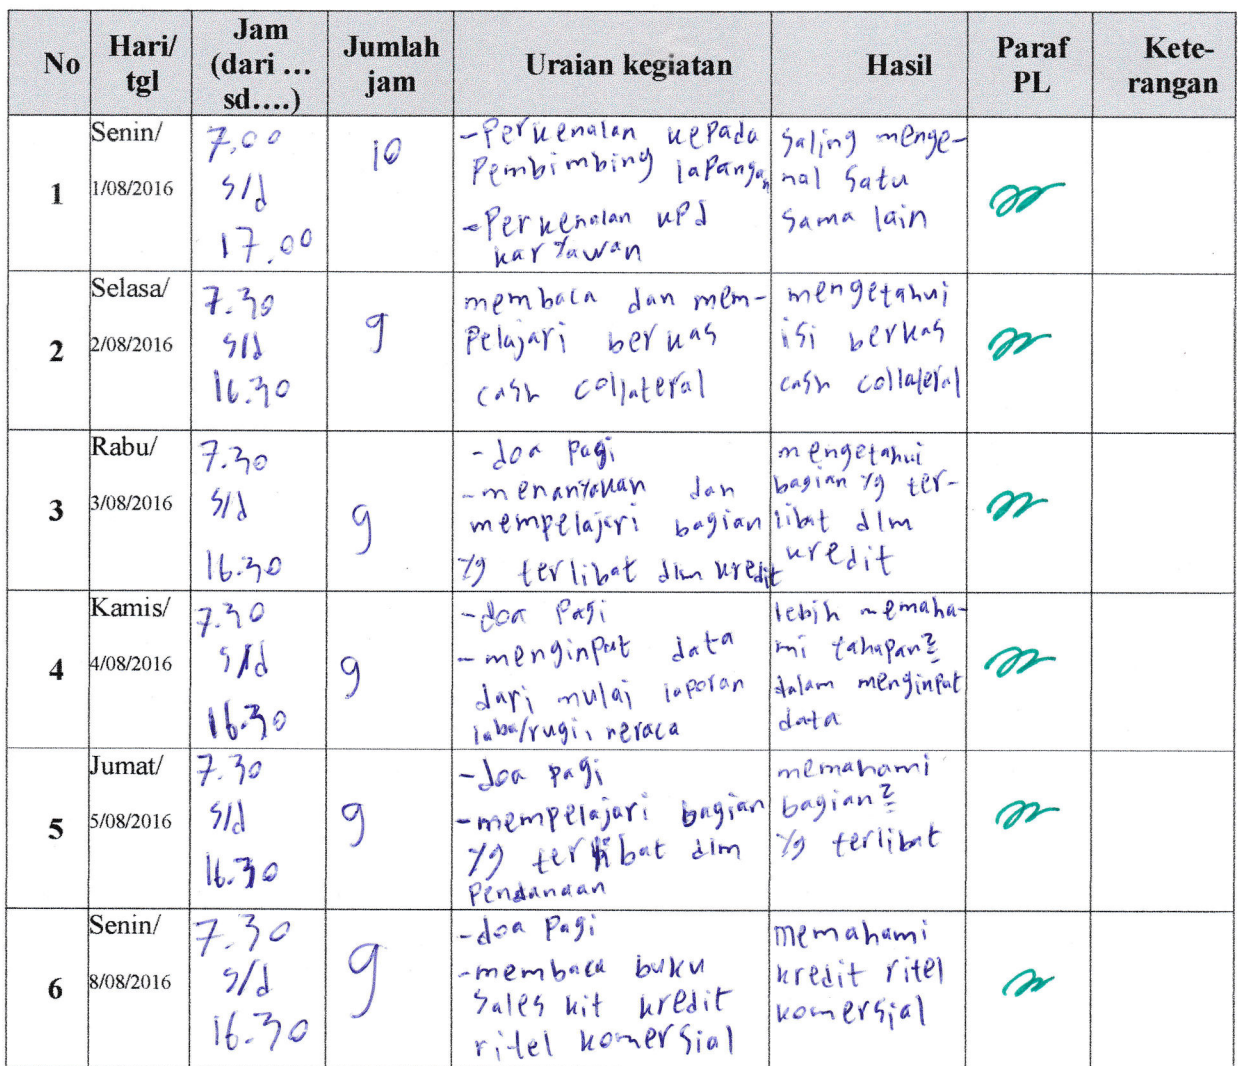 No Hari/ tgl Jam (dari ... sd....) Jumlah jam Uraian kegiatan Hasil Paraf PL Kete-rangan
1
Senin/
1/08/2016
7.00
s/d
17.00
10
-Perkenalan kepada
Pembimbing lapangan
-Perkenalan kpd
karyawan
Saling menge-
nal satu
sama lain
2
Selasa/
2/08/2016
7.30
s/d
16.30
9
membaca dan mem-
pelajari berkas
cash collateral
mengetahui
isi berkas
cash collateral
3
Rabu/
3/08/2016
7.30
s/d
16.30
9
-doa pagi
-menanyakan dan
mempelajari bagian
yg terlibat dlm kredit
mengetahui
bagian yg ter-
libat dlm
kredit
4
Kamis/
4/08/2016
7.30
s/d
16.30
9
-doa pagi
-menginput data
dari mulai laporan
laba/rugi, neraca
lebih memaha-
mi tahapan2
dalam menginput
data
5
Jumat/
5/08/2016
7.30
s/d
16.30
9
-doa pagi
-mempelajari bagian
yg terlibat dlm
pendanaan
memahami
bagian2
yg terlibat
6
Senin/
8/08/2016
7.30
s/d
16.30
9
-doa pagi
-membaca buku
sales kit kredit
ritel komersial
memahami
kredit ritel
komersial